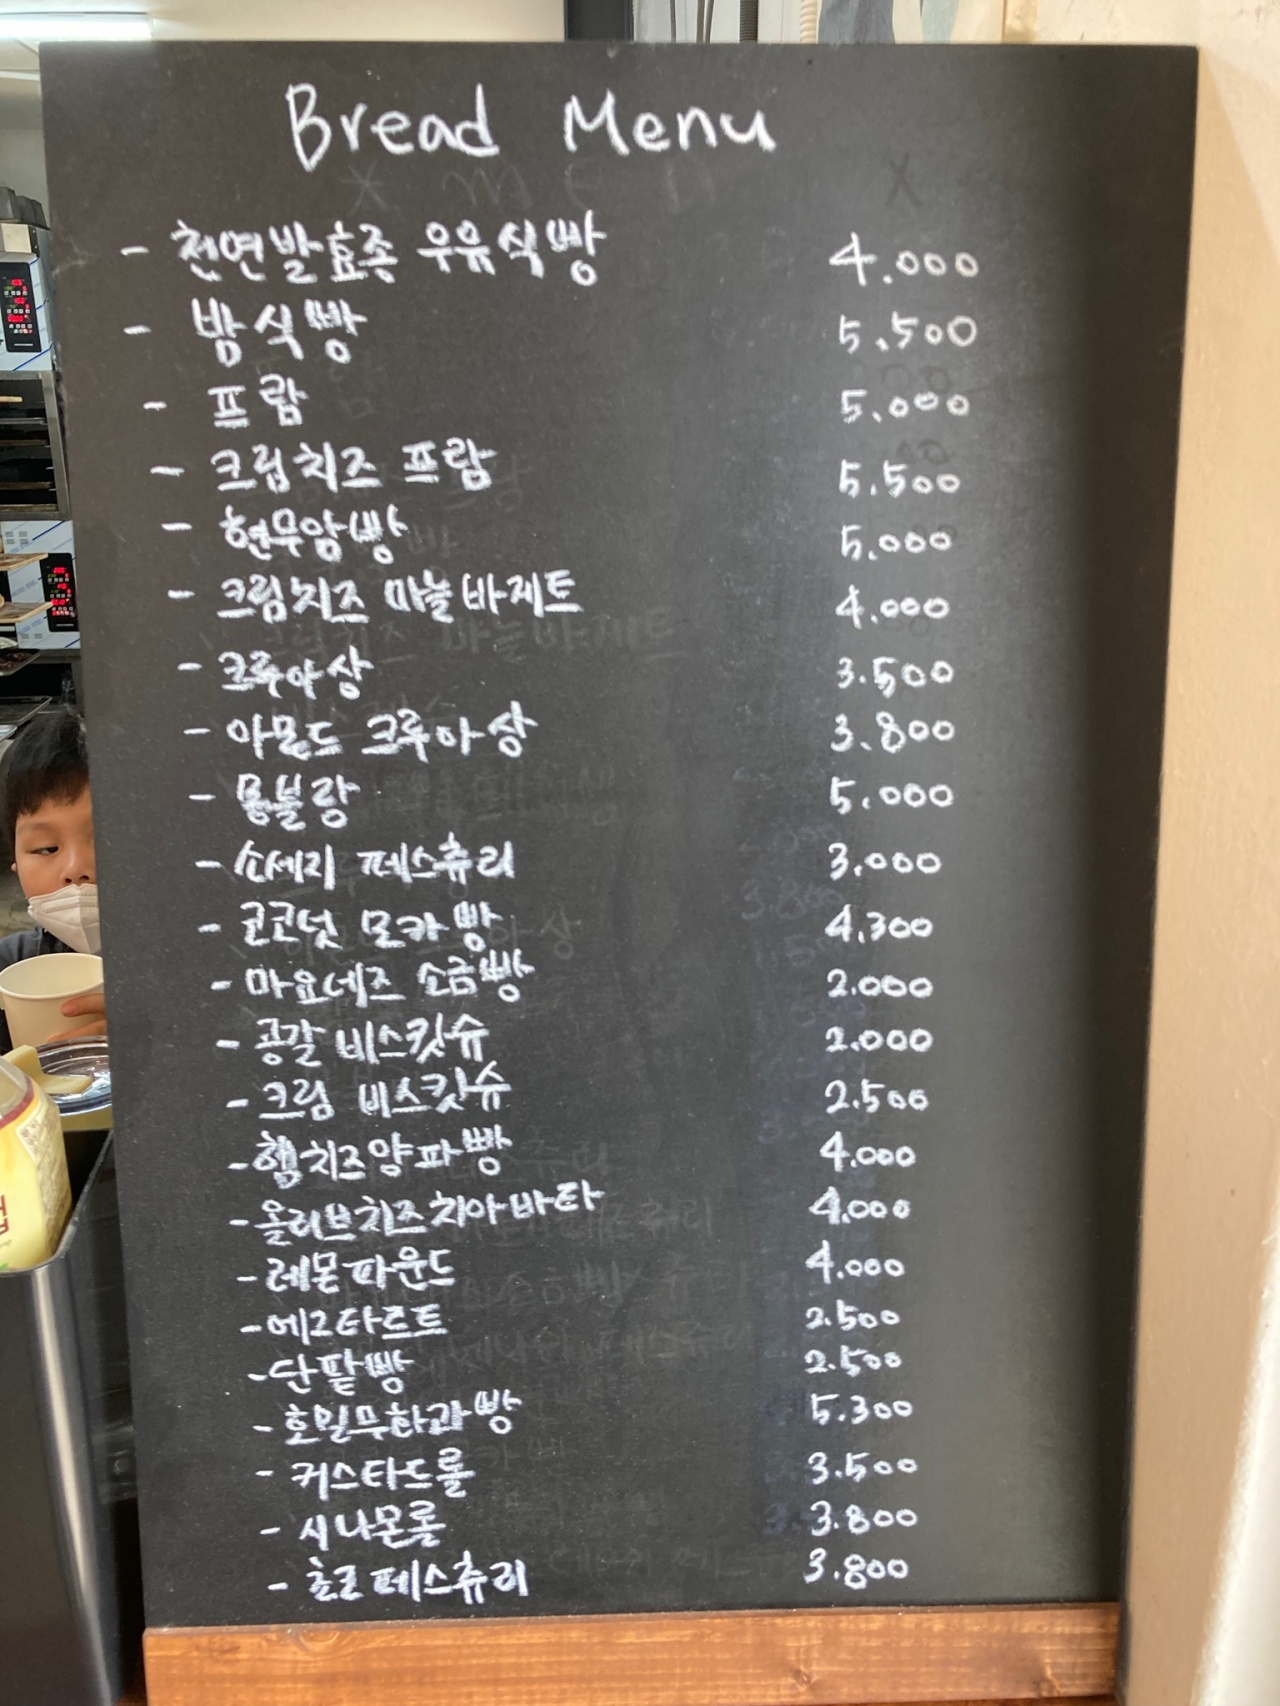 Bread Menu
- 천연발효종 우유식빵 4.000
- 밤식빵 5.500
- 프람 5.000
- 크림치즈 프람 5.500
- 현무암빵 5.000
- 크림치즈 마늘바게트 4.000
- 크루아상 3.500
- 아몬드 크루아상 3.800
- 몽블랑 5.000
- 소세지 페스츄리 3.000
- 코코넛 모카빵 4.300
- 마요네즈 소금빵 2.000
- 공갈 비스킷슈 2.000
- 크림 비스킷슈 2.500
- 햄치즈양파빵 4.000
- 올리브치즈치아바타 4.000
- 레몬파운드 4.000
- 에그타르트 2.500
- 단팥빵 2.500
- 호밀무화과빵 5.300
- 커스타드롤 3.500
- 시나몬롤 3.800
- 쵸코페스츄리 3.800